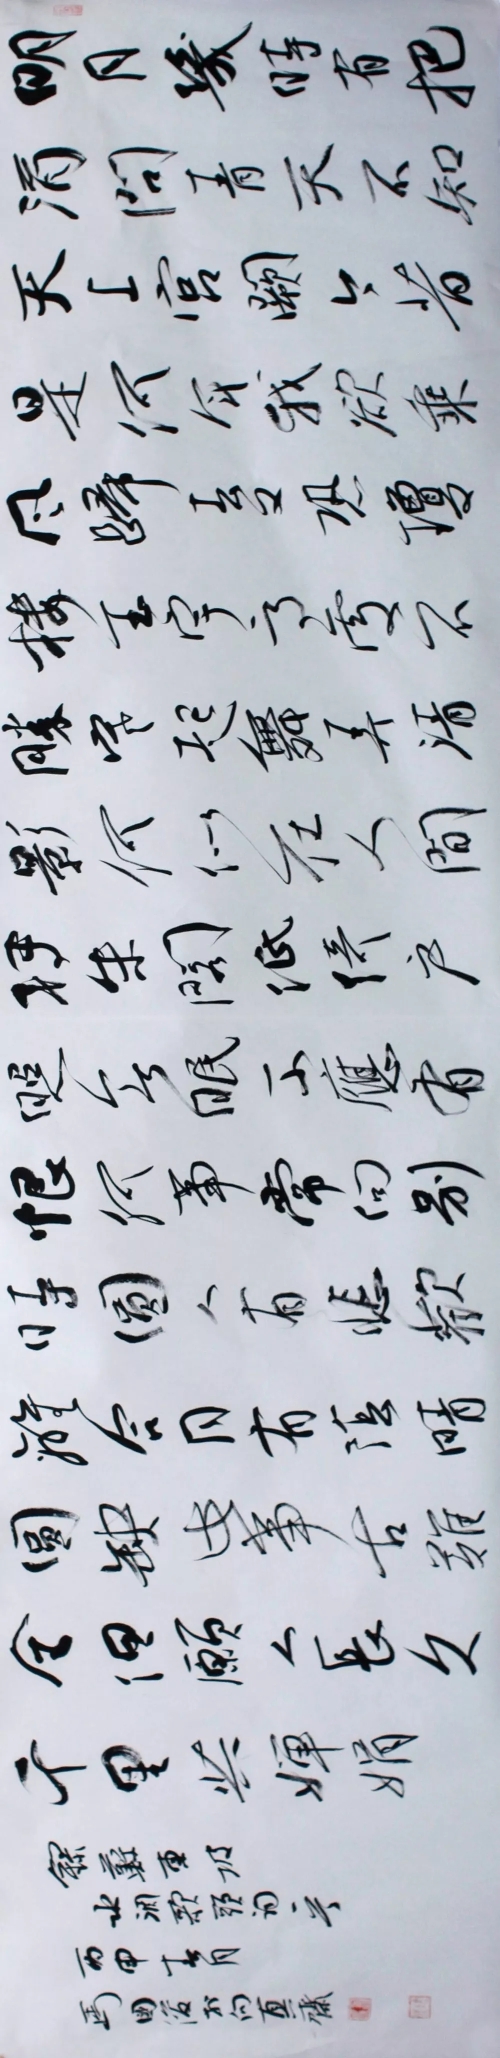 明月幾時有把
酒問青天不知
天上宮闕今昔
是何年我欲乘
風歸去又恐瓊
樓玉宇高處不
勝寒起舞弄清
影何似在人間
轉朱閣低綺戶
照無眠不應有
恨何事常向別
時圓人有悲歡
離合月有陰晴
圓缺此事古難
全但願人長久
千里共嬋娟
錄蘇東坡
水調歌頭詞一首
丙申月
馬國直齋